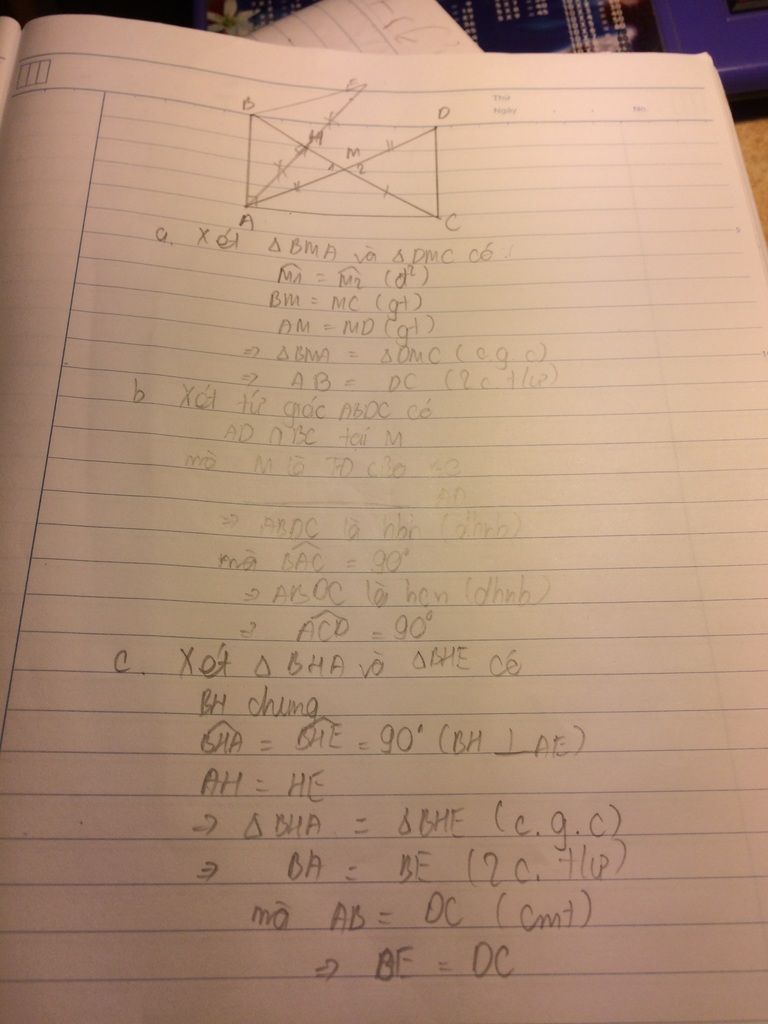 Thứ
Ngày
No.
B
E
D
H
M
1 2
A
C
a. Xét ΔBMA và ΔDMC có:
M̂1 = M̂2 (đ²)
BM = MC (gt)
AM = MD (gt)
=> ΔBMA = ΔDMC (c.g.c)
=> AB = DC (2c. t/ứ)
b Xét tứ giác ABDC có
AD ∩ BC tại M
mà M là TĐ của BC
AD
=> ABDC là hbh (dhnb)
mà BAC = 90°
=> ABDC là hcn (dhnb)
=> ACD = 90°
c. Xét ΔBHA và ΔBHE có
BH chung
BHA = BHE = 90° (BH ⊥ AE)
AH = HE
=> ΔBHA = ΔBHE (c.g.c)
=> BA = BE (2c. t/ứ)
mà AB = DC (cmt)
=> BE = DC